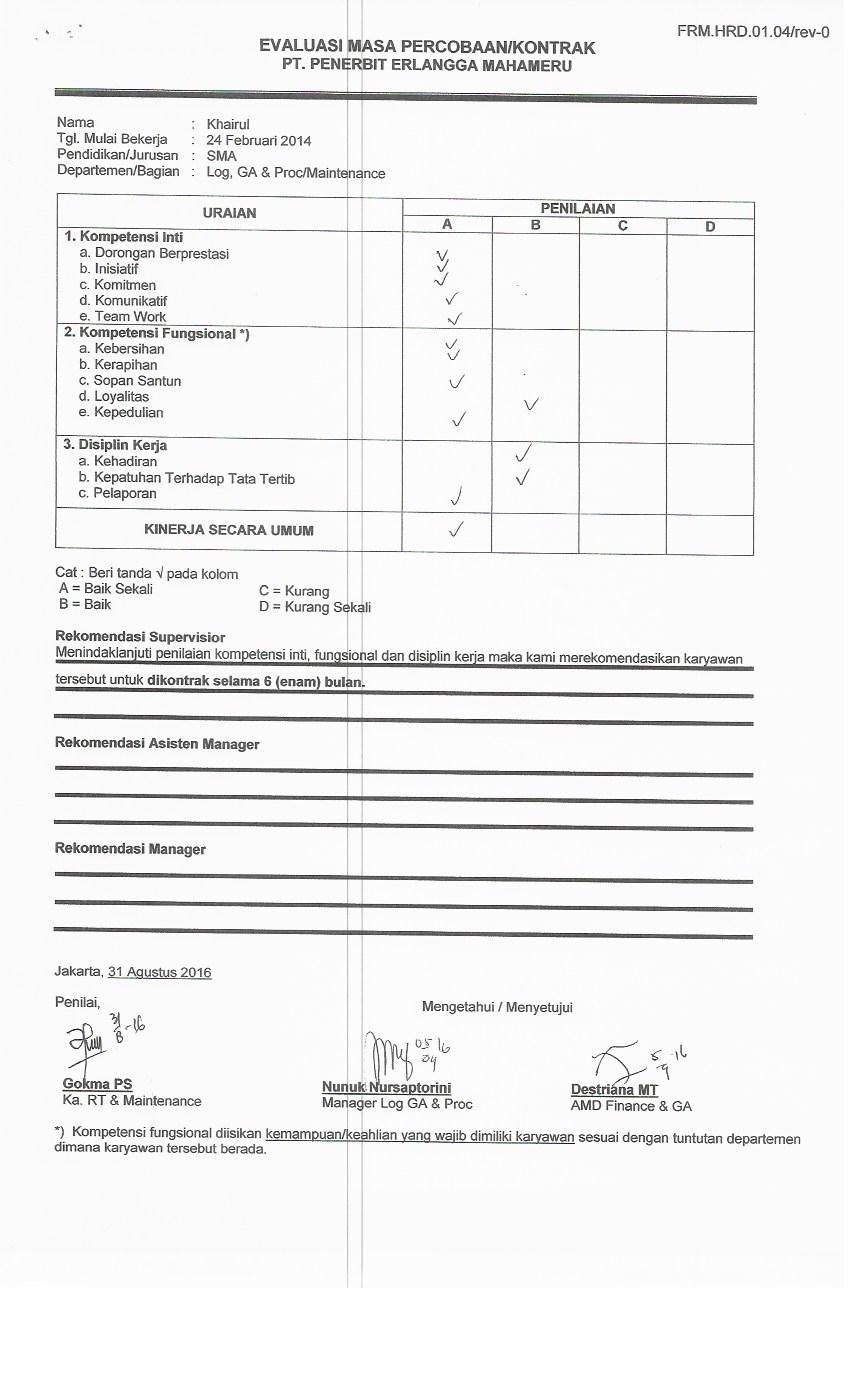 FRM.HRD.01.04/rev-0
EVALUASI MASA PERCOBAAN/KONTRAK
PT. PENERBIT ERLANGGA MAHAMERU
Nama : Khairul
Tgl. Mulai Bekerja : 24 Februari 2014
Pendidikan/Jurusan : SMA
Departemen/Bagian : Log, GA & Proc/Maintenance
URAIAN PENILAIAN
A B C D
1. Kompetensi Inti
a. Dorongan Berprestasi ✓
b. Inisiatif ✓
c. Komitmen ✓
d. Komunikatif ✓
e. Team Work ✓
2. Kompetensi Fungsional *)
a. Kebersihan ✓
b. Kerapihan ✓
c. Sopan Santun ✓
d. Loyalitas ✓
e. Kepedulian ✓
3. Disiplin Kerja
a. Kehadiran ✓
b. Kepatuhan Terhadap Tata Tertib ✓
c. Pelaporan ✓
KINERJA SECARA UMUM ✓
Cat : Beri tanda √ pada kolom
A = Baik Sekali C = Kurang
B = Baik D = Kurang Sekali
Rekomendasi Supervisior
Menindaklanjuti penilaian kompetensi inti, fungsional dan disiplin kerja maka kami merekomendasikan karyawan
tersebut untuk dikontrak selama 6 (enam) bulan.
Rekomendasi Asisten Manager
Rekomendasi Manager
Jakarta, 31 Agustus 2016
Penilai, Mengetahui / Menyetujui
31/8-16 05 16 5-16
09 9
Gokma PS Nunuk Nursaptorini Destriana MT
Ka. RT & Maintenance Manager Log GA & Proc AMD Finance & GA
*) Kompetensi fungsional diisikan kemampuan/keahlian yang wajib dimiliki karyawan sesuai dengan tuntutan departemen
dimana karyawan tersebut berada.